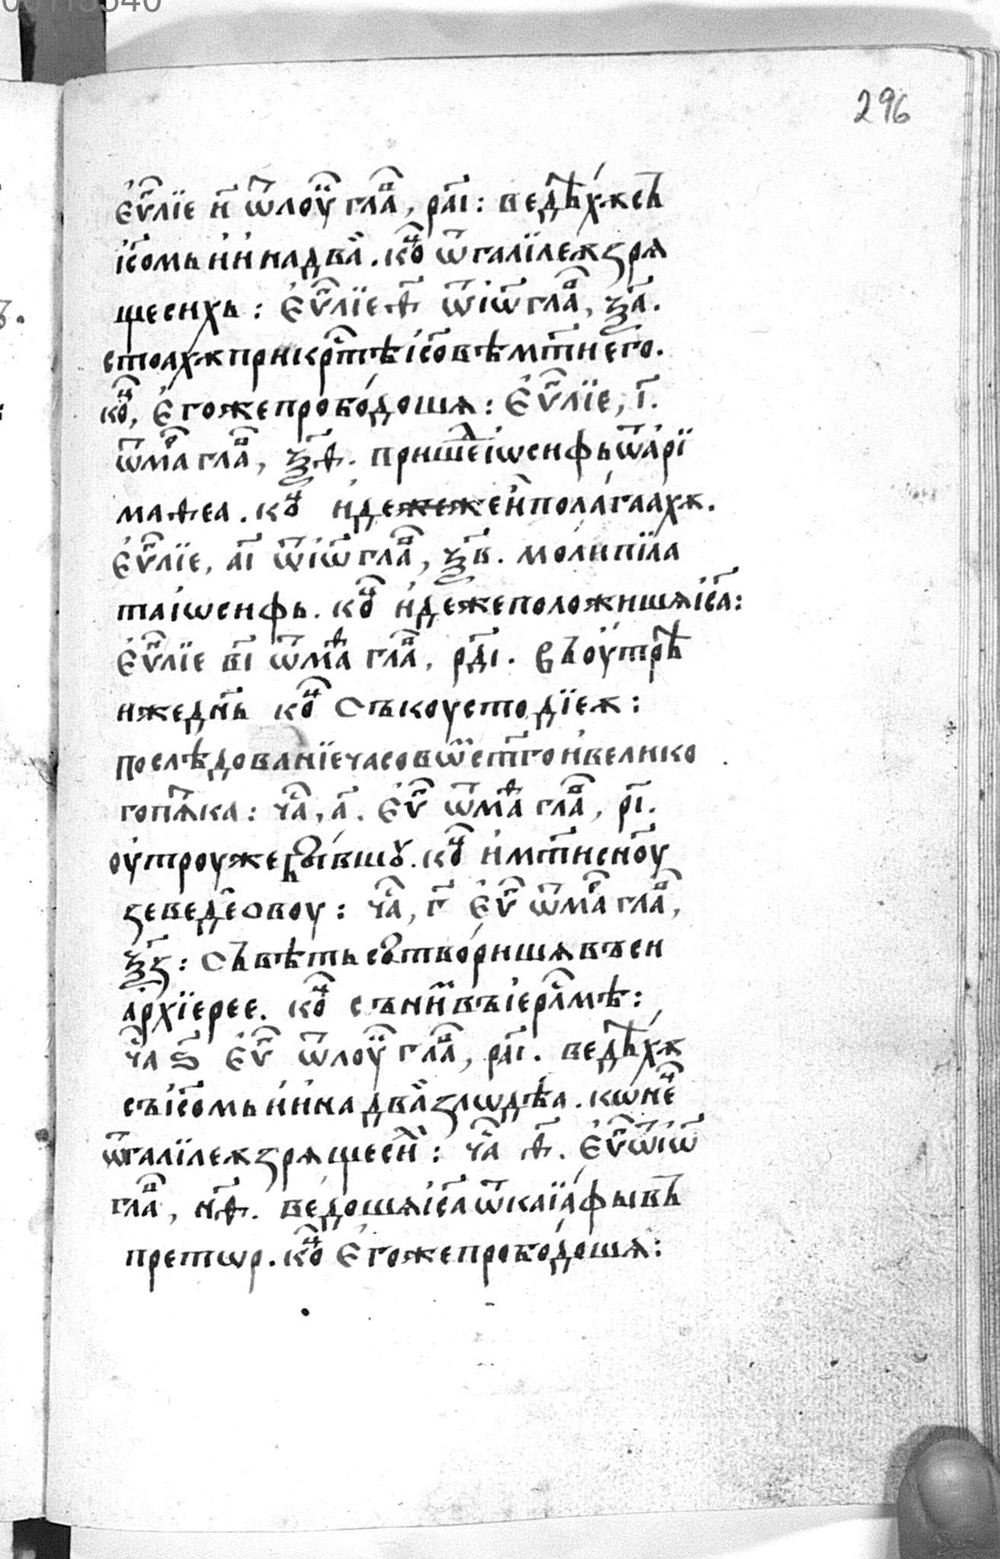 296
еѵ҃лїе и҃ ѿ лоу҃ гла҃, ра҃і: ведѣхѫ съ
і҃сомь и҆ и҆на два̀. ко҃ ѿ галїлеѫ зря
щесихь: Еѵ҃лїе ѳ҃ ѿ іѡ҃ гла҃, ѯ҃а.
стоахѫ при кр҃тѣ і҃совѣ м҃ти его.
ко҃, Егоже прободошѧ: Еѵ҃лїе, і҃.
ѿ ма҃ гла҃, ѯ҃ѳ. пришє҃ іѡсифь ѿ арї
маѳеа. ко҃ идежеже и҆ полагаахѫ.
Еѵ҃лїе, а҃і ѿ іѡ҃ гла҃, ѯ҃в. моли пїла
та іѡсифь. ко҃ идеже положишѧ і҃са:
Еѵ҃лїе в҃і ѿ ма҃ѳ гла҃, рд҃і. въ оутрѣ
иже дн҃ь ко҃ Съ коустодїеѫ:
послѣдованїе часовѡ҃ ст҃го и҆ велико
го пѧ҃ка: ча҃, а҃. Еѵ҃ ѿ ма҃ѳ гла҃, р҃і.
оутроу же бывшꙋ. ко҃ и҆ м҃ти сн҃оу
зеведеѡвоу: ча҃, г҃ Еѵ҃ ѿ ма҃ гла҃,
ѯ҃з: Съвѣть сотворишѧ въси
архїерее. ко҃ съ ни҃ въ іерл҃мѣ:
ча҃ ѕ҃ Еѵ҃ ѿ лоу҃ гла҃, ра҃і. ведѣхѫ
съ і҃сомь и҆ и҆на два̀ злѡдѣа. кѡне҃
ѿ галїлеѫ зрѧще си҃: ча҃ ѳ҃. Еѵ҃ ѿ іѡ҃
гла҃, н҃ѳ. ведошѧ і҃са ѿ каїафы въ
претѡр. ко҃ Егоже прободошѧ: